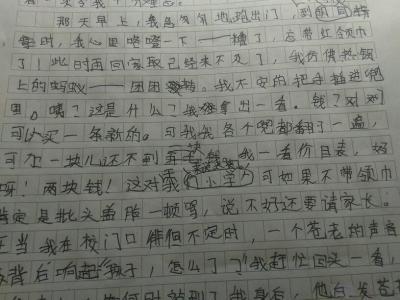 那天早上，我匆匆忙忙地跑出门，到
时，我心里咯噔一下——糟了，忘带红领巾
了！此时再回家取已经来不及了，我仿佛热锅
上的蚂蚁——团团转。我不安的把手插进兜
里。嗯？这是什么？我拿出一看。钱？对对
可以买一条新的。可我找各个兜都翻了一遍，
可加一块儿还不到两块钱。我一看价目表，好
呀！两块钱！这对我们小学 可如果不带领巾
肯定是批头盖脸一顿骂，说不好还要请家长。
正当我在校门口徘徊不定时，一个苍老的声音
背后响起"孩子，怎么了？"我赶忙回头一看，
到了我身后，他白发苍苍